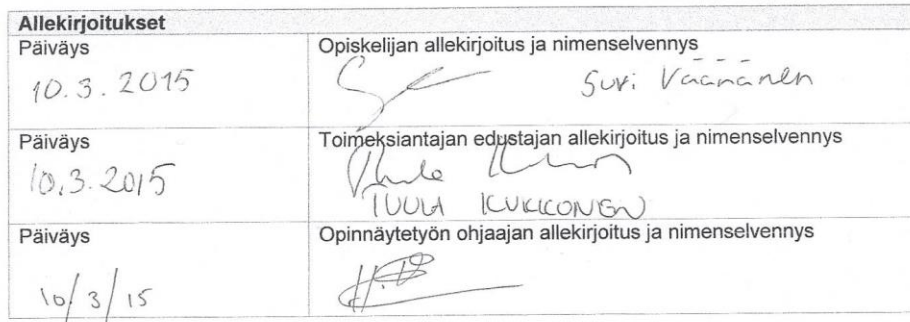 Allekirjoitukset
Päiväys
Opiskelijan allekirjoitus ja nimenselvennys
10.3.2015
Suvi Väänänen
Päiväys
Toimeksiantajan edustajan allekirjoitus ja nimenselvennys
10.3.2015
TUULA KUKKONEN
Päiväys
Opinnäytetyön ohjaajan allekirjoitus ja nimenselvennys
10/3/15